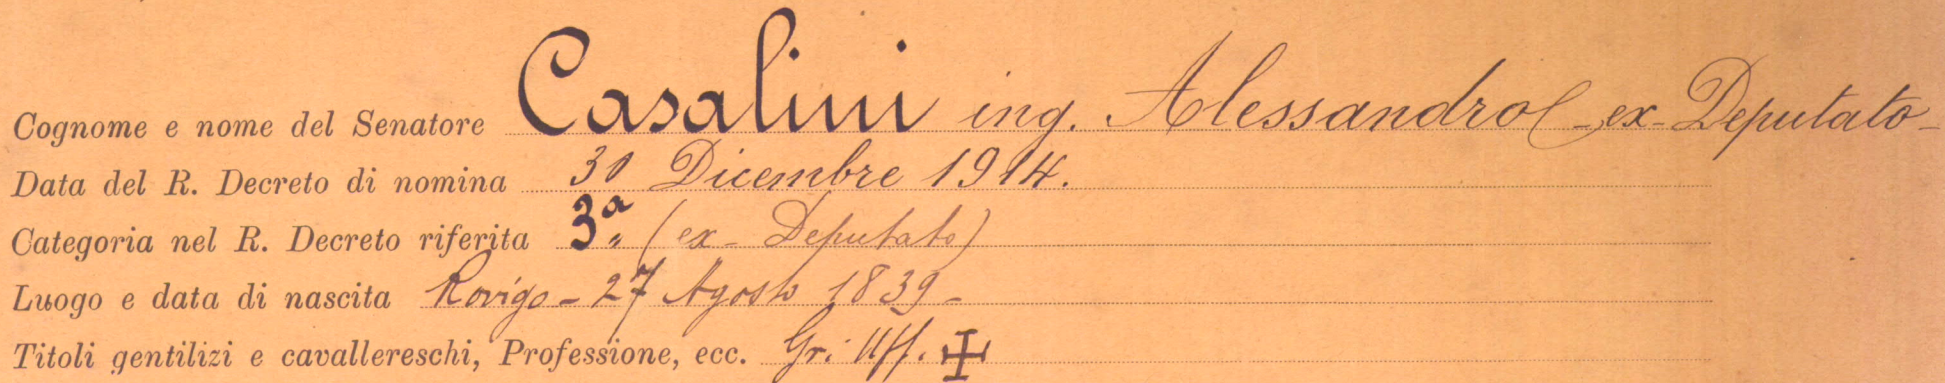 Cognome e nome del Senatore Casalini ing. Alessandro (-ex-Deputato-
Data del R. Decreto di nomina 30 Dicembre 1914.
Categoria nel R. Decreto riferita 3ª (ex-Deputato)
Luogo e data di nascita Rovigo - 27 Agosto 1839 -
Titoli gentilizi e cavallereschi, Professione, ecc. Gr. Uff. ✠